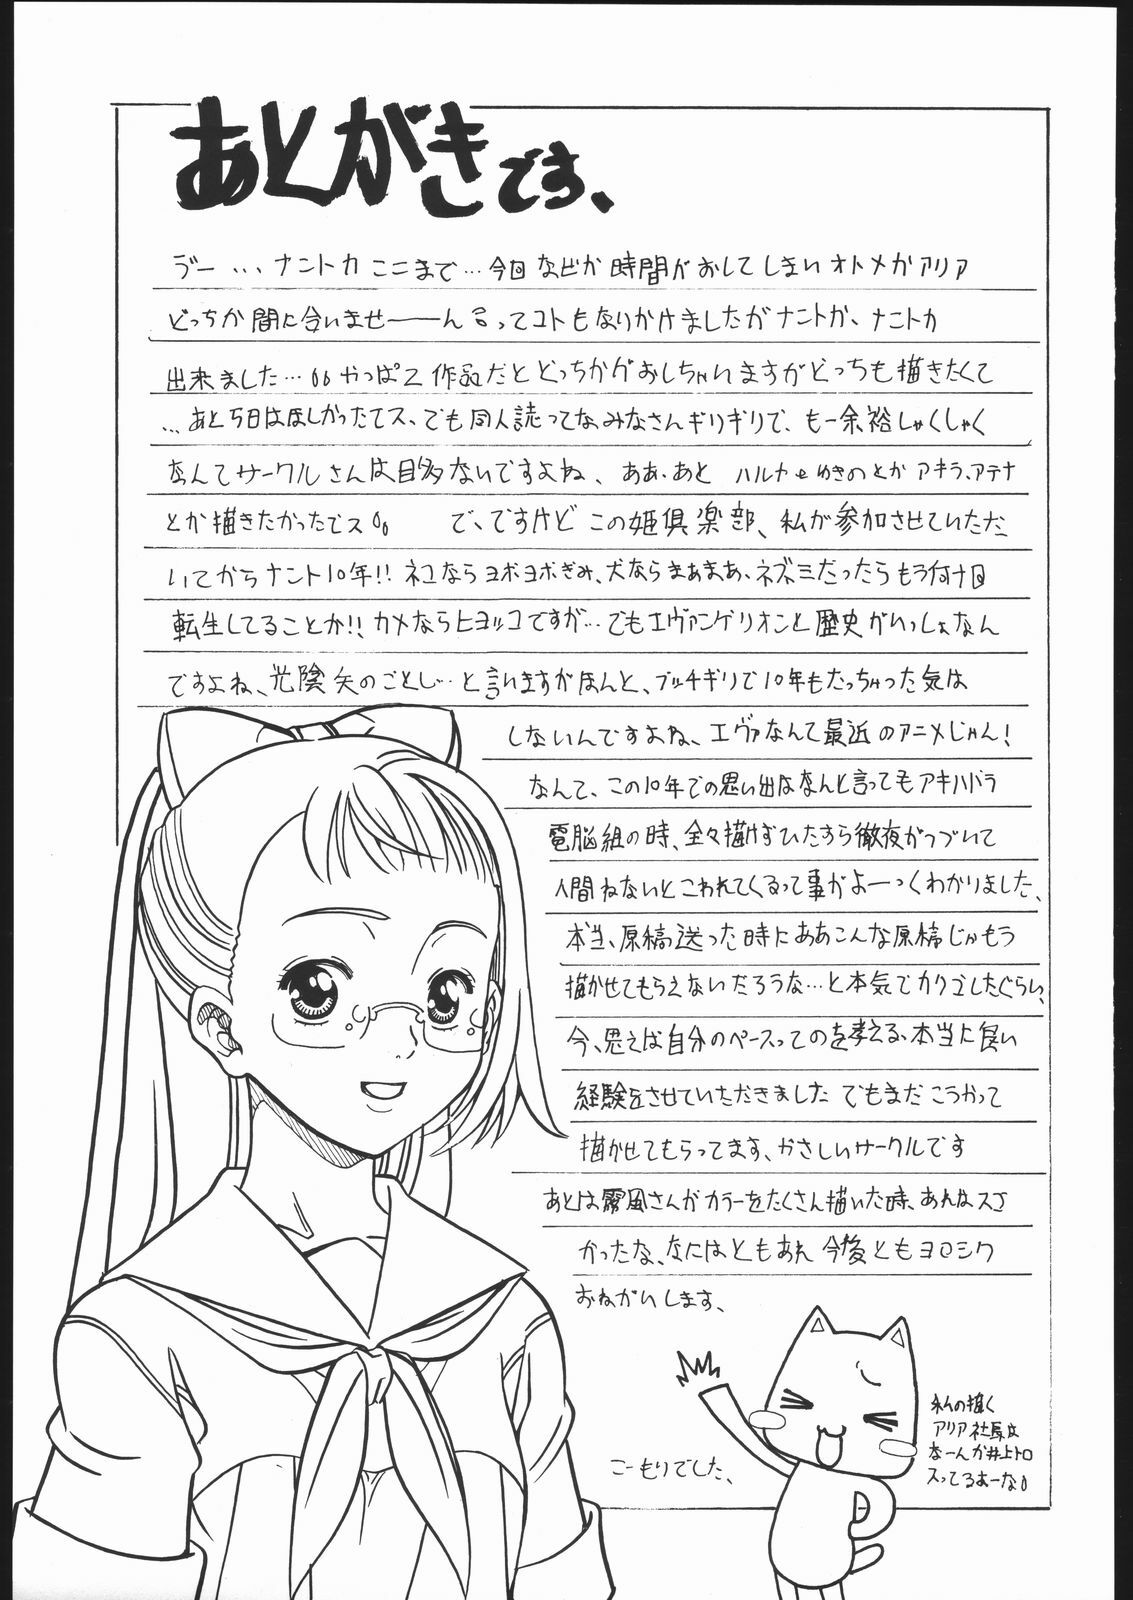 あとがきです、
デー...ナントカここまで…今回などか時間がおしてしまいオトメかアリア
どっちか間に合いませ――ん！ってコトもなりかけましたがナントか、ナニトカ
出来ました…。やっぱ2作品だとどっちかがおしちゃいますがどっちも描きたくて
…あと5日はほしかったてス、でも同人誌ってなみなさんギリギリで、もー余裕しゃくしゃく
なんてサークルさんは目多ないですよね、ああ、あと ハルナとゆきのとかアキラ、アテナ
とか描きたかったでス。 で、ですけど この姫倶楽部、私が参加させていただ
いてからナント10年!! ネコならヨボヨボぎみ、犬ならまあまあ、ネズミだったらもう何十回
転生してることか!! カメならヒヨッコですが…でもエヴァンゲリオンと歴史がいっしょなん
ですよね、光陰矢のごとし…と言いますがほんと、ブッチギリで10年もたっちゃった気は
しないんですよね、エヴァなんて最近のアニメじゃん！
なんて、この10年での思い出はなんと言ってもアキハバラ
電脳組の時、全々描けずひたすら徹夜がつづいて
人間ねないとこわれてくるって事がよーっくわかりました、
本当、原稿送った時にああこんな原稿じゃもう
描かせてもらえないだろうな…と本気でカクゴしたぐらい、
今、思えば自分のペースってのを考える、本当に良い
経験をさせていただきました でもまだこうやって
描かせてもらってます、やさしいサークルです
あとは霧風さんがカラーをたくさん描いた時、あれはスゴ
かったな、なにはともあれ 今後ともヨロシク
おねがいします、
こーもりでした、
私の描く
アリア社長は
なーんか井上トロ
入ってるあーな。